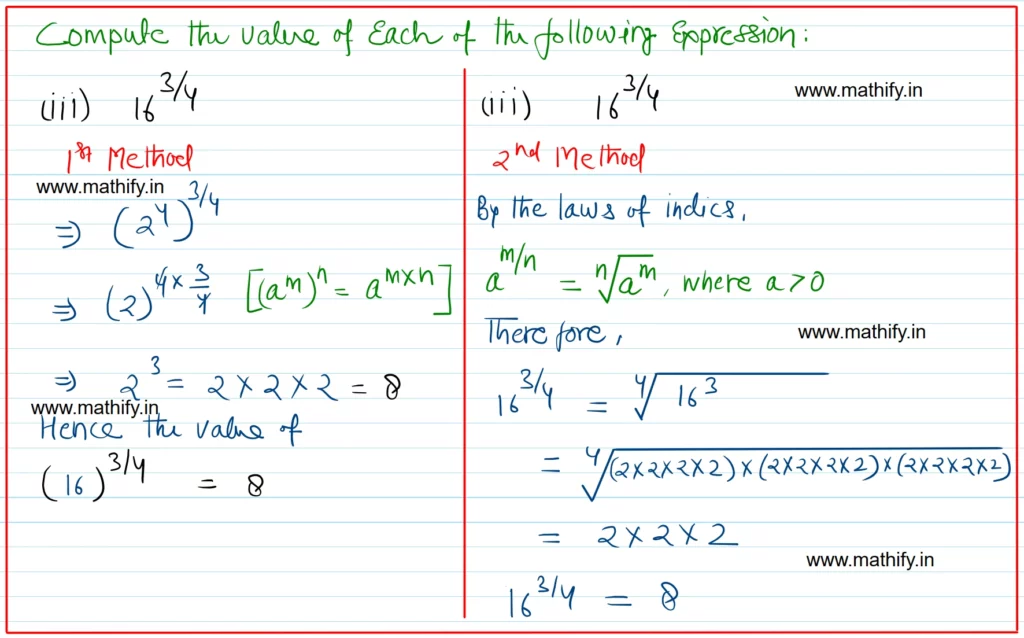 Compute the value of Each of the following Expression:
(iii) 16^3/4
1st Method
www.mathify.in
⇒ (2^4)^3/4
⇒ (2)^4×3/4 [(a^m)^n = a^m×n]
⇒ 2^3 = 2×2×2 = 8
www.mathify.in
Hence the value of
(16)^3/4 = 8
(iii) 16^3/4 www.mathify.in
2nd Method
By the laws of indics,
a^m/n = n√a^m, where a>0
Therefore, www.mathify.in
16^3/4 = 4√16^3
= 4√(2×2×2×2)×(2×2×2×2)×(2×2×2×2)
= 2×2×2
www.mathify.in
16^3/4 = 8